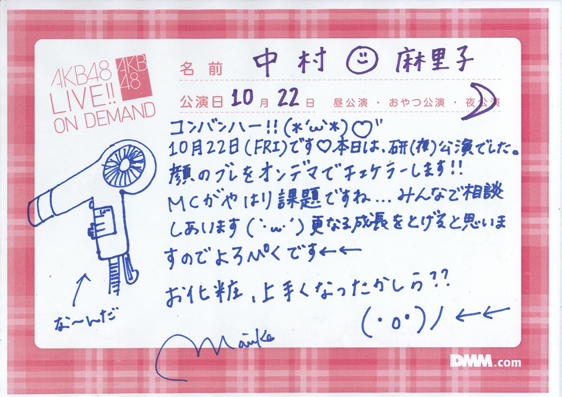 AKB48
LIVE!!
ON DEMAND
AKB
48
名前 中村 麻里子
公演日 10月 22日 昼公演・おやつ公演・夜公演
コンバンハー!!(*'ω'*)♡"
10月22日(FRI)です♡本日は、研(推)公演でした。
顔のブレをオンデマでチェケラーします!!
MCがやはり課題ですね...みんなで相談
しあいます(`・ω・´)更なる成長をとげると思いま
すのでよろぺくです←←
お化粧、上手くなったかしら??
(・o・)ノ ←←
な〜んだ
Mariko
DMM.com